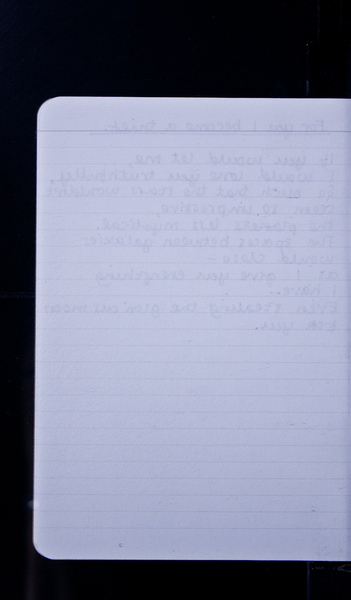 For you I become a thief.
If you would let me
I would love you truthfully,
So much that the stars wouldn't
seem so impressive,
the planets less mystical.
The spaces between galaxies
would close –
as I give you everything
I have.
Even stealing the glorious moon
for you.